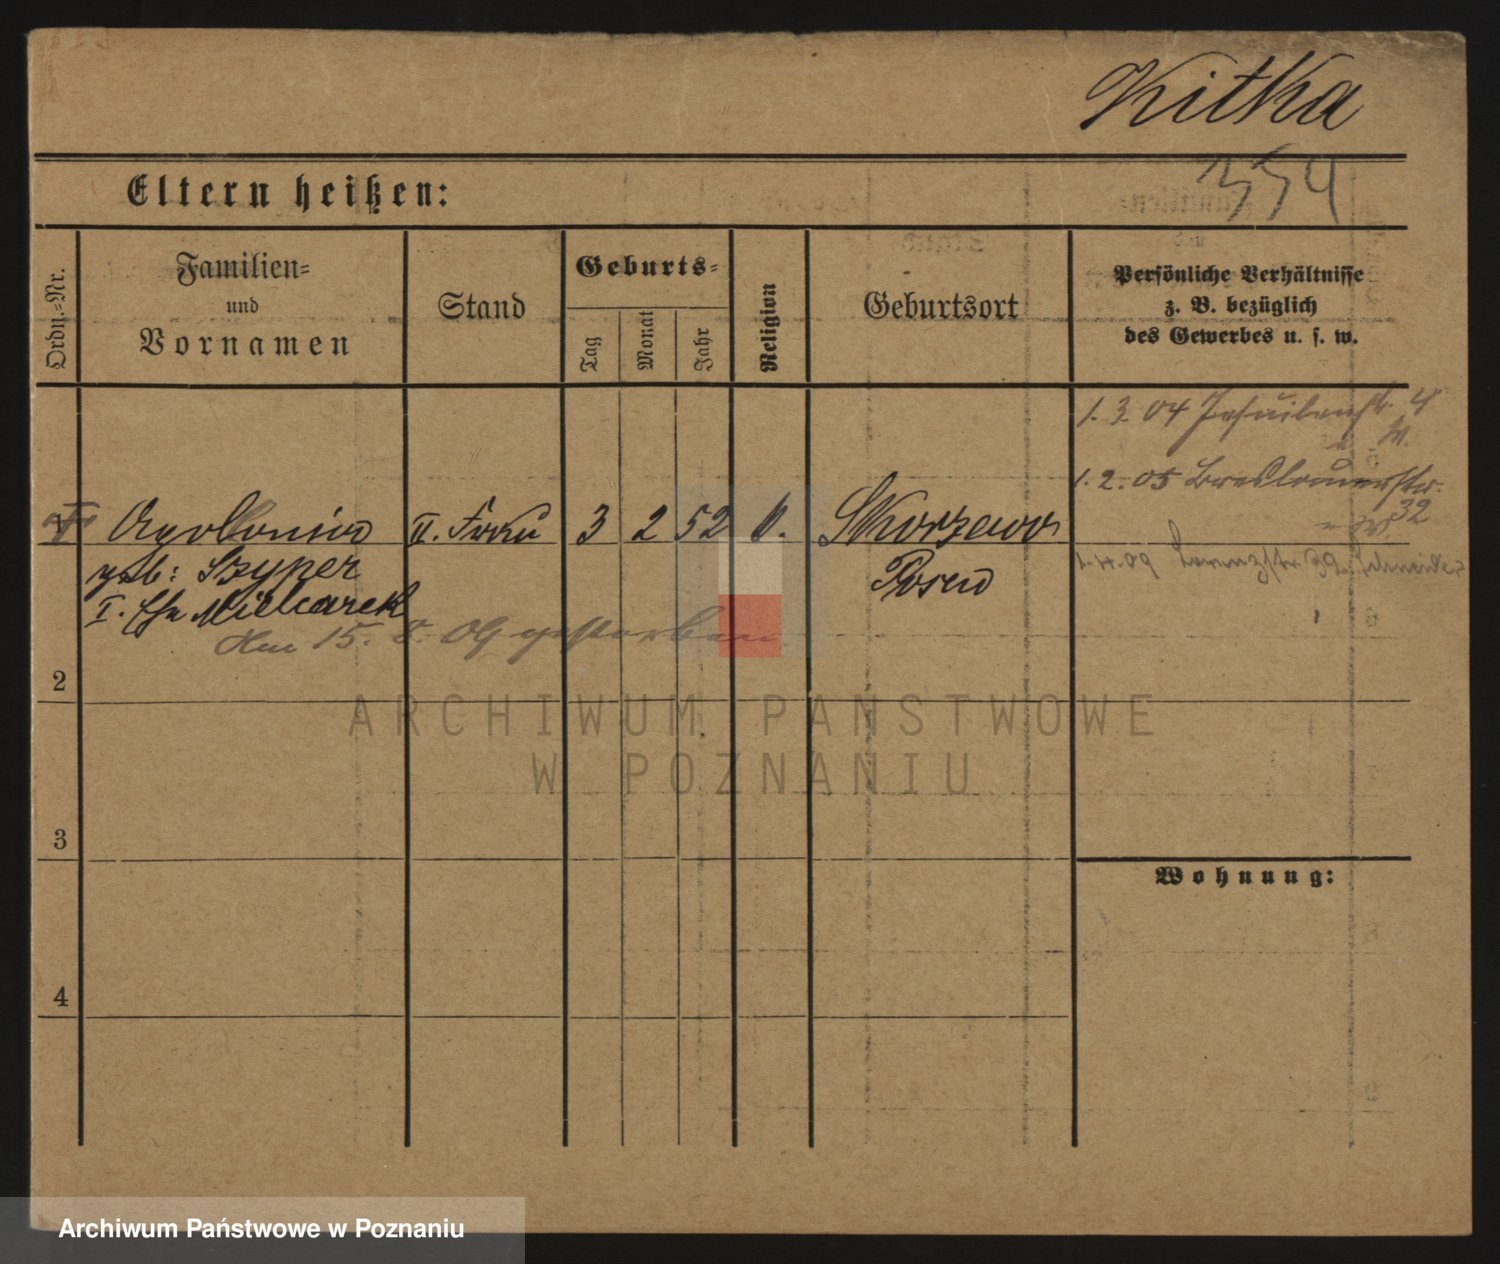 Kitka
354
Eltern heißen:
Ordn.-Nr.
Familien-
und
Vornamen
Stand
Geburts-
Tag
Monat
Jahr
Religion
Geburtsort
Persönliche Verhältnisse
z. B. bezüglich
des Gewerbes u. s. w.
1. 3. 04 Jesuitenstr. 4
1. 2. 05 Breslauerstr.
32
1 Apollonia II. Frau 3 2 52 k. Skorzewo
geb: Szyper Posen
I. Ehe Mielcarek
1.4.09 Lorenzstr. Schneider
Am 15. 8. 09 gestorben
2
ARCHIWUM PAŃSTWOWE
W POZNANIU
3
Wohnung:
4
Archiwum Państwowe w Poznaniu